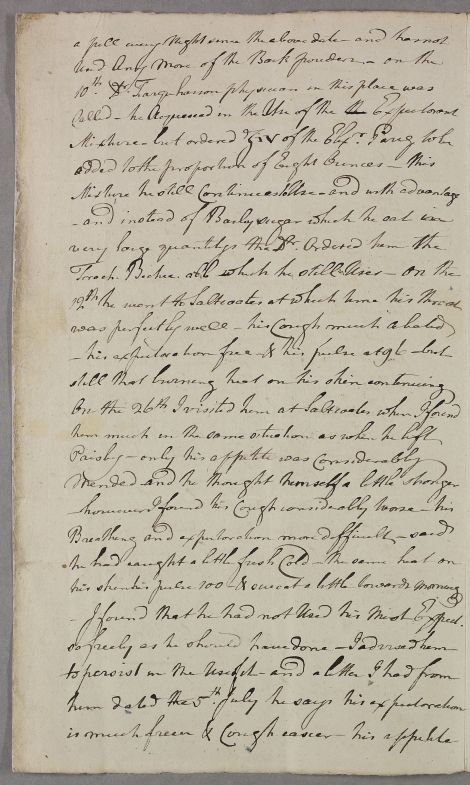 a pill every Night since the above date - and has not
used Any More of the Bark powders - on the
10th. Dr. Farquharson physician in this place was
Called - he Acquiesced in the Use of the Expectorant
Mixture - but ordered ʒiv of the Elixr. Pareg to be
added to the proportion of Eight Ounces - This
Mixture he still Continues to Use - and with advantage
- and instead of Barley sugar which he eat in
very large quantitys the Dr. Ordered him the
Troch. Bechic. alb which he still Uses - On the
12th he went to Saltcoates at which time his throat
was perfectly well - his Cough much abated
- his expectoration free - & his pulse at 96 - but
still that burning heat on his skin continuing
On the 26th I visited him at Saltcoates when I found
him much in the same situation as when he left
Paisly - only his appetite was Considerably
Mended and he thought himself a little stronger
- however I found his Cough considerably worse - his
Breathing and expectoration more difficult - said
he had caught a little fresh Cold - the same heat on
his skin his pulse 100 - & sweat a little towards morning
- I found that he had not Used his Mixt. Expect.
so freely as he should have done - I advised him
to persist in the Use of it - and a letter I had from
him dated the 5th. July he says his expectoration
is much freer & Cough easier - his appetite